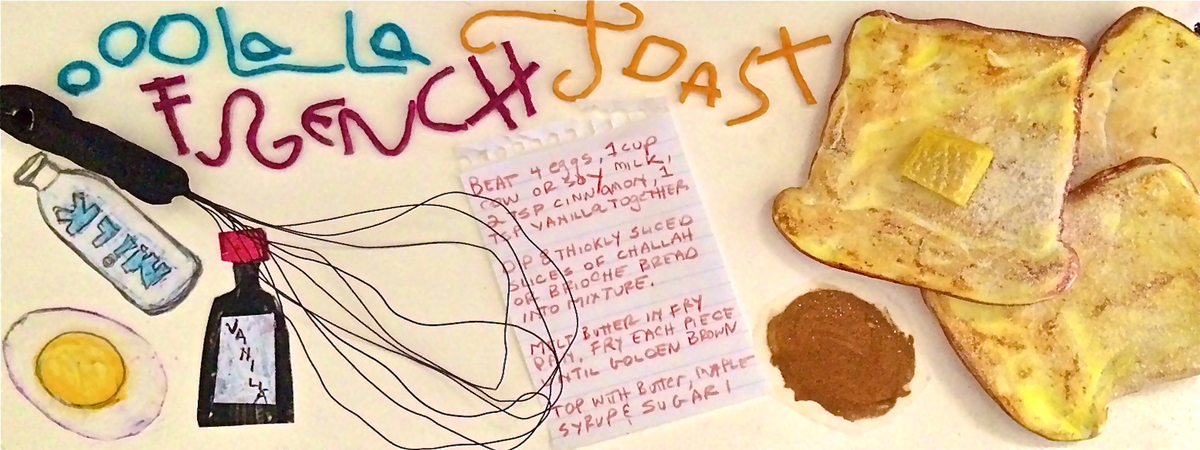 oooLa La
FRENCH TOAST
MILK
VANILLA
BEAT 4 eggs, 1 cup
COW OR SOY MILK,
2 TSP CINNAMON, 1
TSP VANILLA TOGETHER
DIP 8 THICKLY SLICED
SLICES OF CHALLAH
OR BRIOCHE BREAD
INTO MIXTURE.
MELT BUTTER IN FRY
PAN. FRY EACH PIECE
UNTIL GOLDEN BROWN
TOP WITH BUTTER, MAPLE
SYRUP & SUGAR!